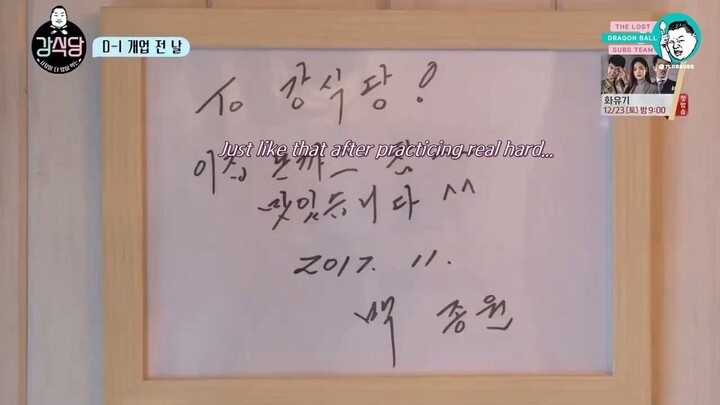 강식당
D-1 개업 전 날
THE LOST
DRAGON BALL
SUBS TEAM
@TLDBSUBS
화유기
12/23 [토] 밤 9:00
첫방송
to 강식당!
Just like that after practicing real hard...
이집 돈까스 참
맛있습니다 ^^
2017. 11.
백종원